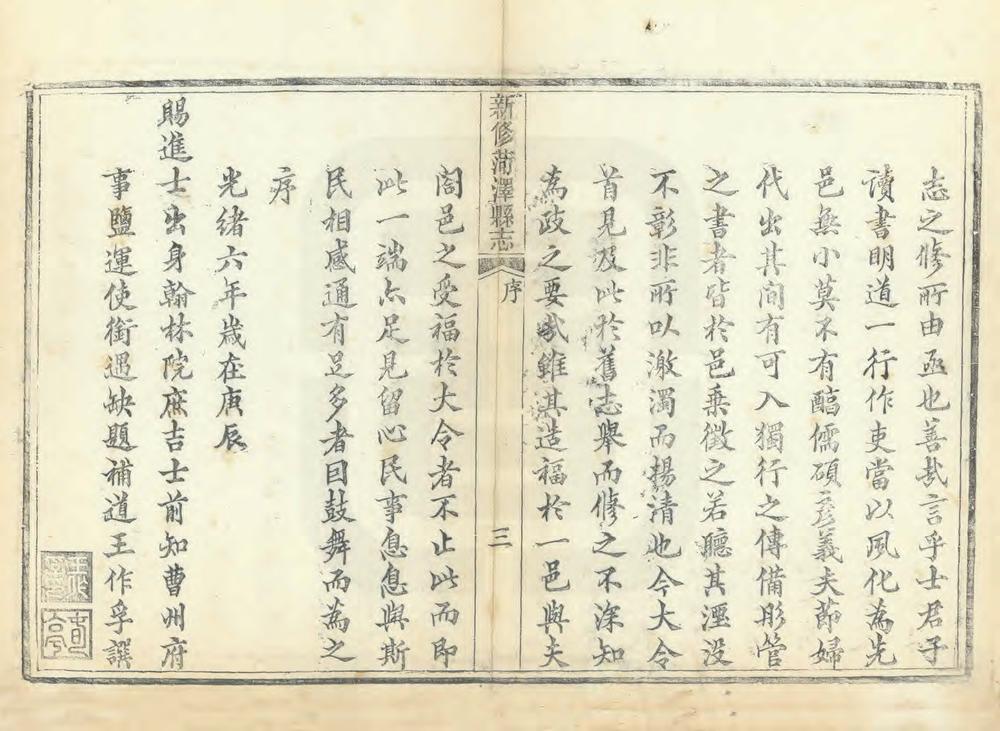 志之修所由亟也善哉言乎士君子
讀書明道一行作吏當以風化為先
邑無小莫不有醕儒碩彥義夫節婦
代出其间有可入獨行之傳備彤管
之書者皆於邑乗徵之若聽其湮没
不彰非所以激濁而揚清也今大令
首見及此於舊志舉而修之不深知
為政之要哉雖其造福於一邑與夫
新修菏澤縣志
序
三
闔邑之受福於大令者不止此而即
此一端亦足見留心民事息息與斯
民相感通有足多者因鼓舞而為之
序
光緒六年歲在庚辰
賜進士出身翰林院庶吉士前知曹州府
事鹽運使銜遇缺題補道王作孚譔